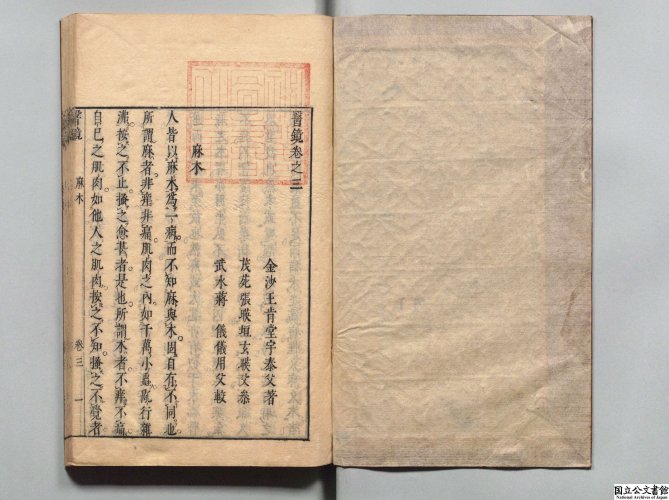 醫鏡卷之三
金沙王肯堂宇泰父著
茂苑張暎垣玄暎父叅
武水蔣儀儀用父較
麻木
人皆以麻木爲一病而不知麻與木固自有不同也
所謂麻者非痒非痛肌肉之內如千萬小蟲亂行雜
沸按之不止搔之愈甚者是也所謂木者不痒不痛
自己之肌肉如他人之肌肉按之不知搔之不覺者
醫鏡 麻木 卷三 一
国立公文書館
National Archives of Japan